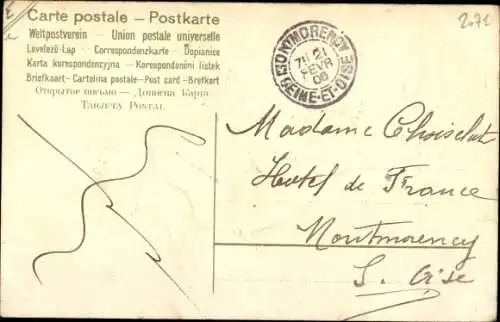 2071
Carte postale – Postkarte
Weltpostverein – Union postale universelle
Levelező-Lap – Correspondenzkarte – Dopisnice
Karta korespondencyjna – Korespondenční lístek
Briefkaart – Cartolina postale – Post card – Brefkort
Открытое письмо — Дописна Карта
TARJETA POSTAL
MONTMORENCY
21
FEVR
06
SEINE-ET-OISE
Madame Choiselat
Hotel de France
Montmorency
S. Oise